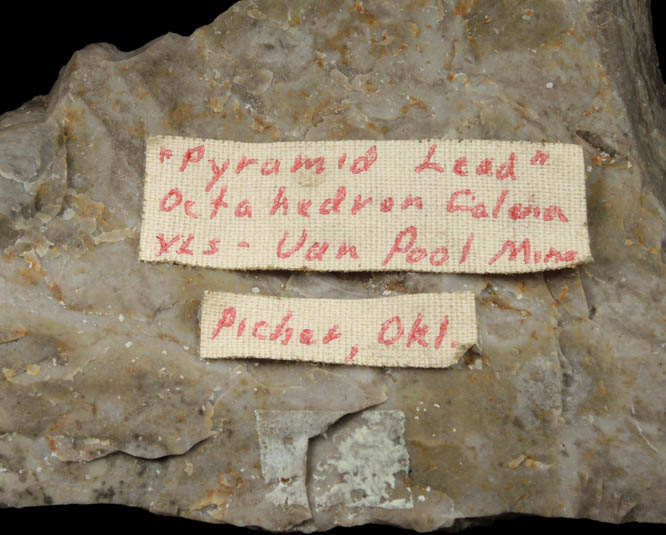 "Pyramid Lead"
Octahedron Galena
XLs - Van Pool Mine
Picher, Okl.